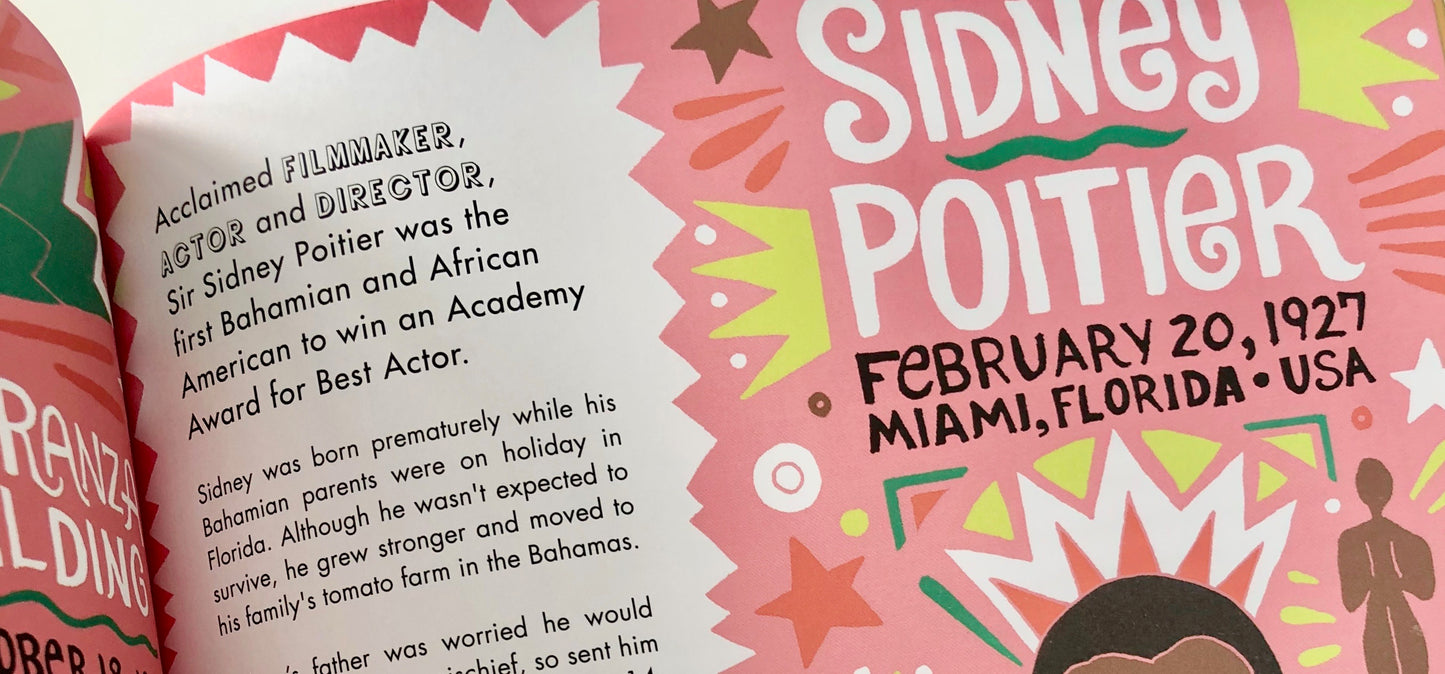 Acclaimed FILMMAKER,
ACTOR and DIRECTOR,
Sir Sidney Poitier was the
first Bahamian and African
American to win an Academy
Award for Best Actor.
Sidney was born prematurely while his
Bahamian parents were on holiday in
Florida. Although he wasn't expected to
survive, he grew stronger and moved to
his family's tomato farm in the Bahamas.
father was worried he would
so sent him
SIDNEY
POITIER
FEBRUARY 20, 1927
MIAMI, FLORIDA • USA